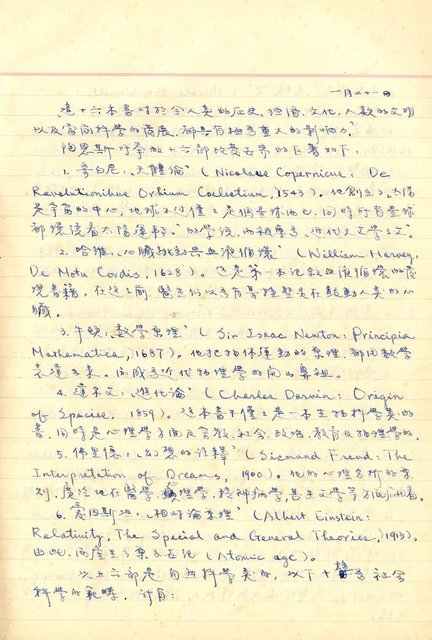 一月二十一日
這十六本書對於全人類的歷史、經濟、文化、人類的文明
以及當間科學的發展,都具有極為重大的影響力。
陶恩斯所舉的十六部改變世界的巨著如下:
1. 哥白尼:“天體論” (Nicolaus Copernicus: De
Revolutionibus Orbium Coelestium, 1543)。他創立了太陽
是宇宙的中心,地球不過僅是個星球而已,同時所有星球
都環繞着太陽運行。的學說,而被尊為“近代天文學之父”。
2. 哈維:“心臟跳動與血液循環” (William Harvey,
De Motu Cordis, 1628)。這是第一本記載血液循環的
書籍。在這之前,醫生們以為有
臟。
3. 牛頓:“數學原理” (Sir Isaac Newton: Principia
Mathematica, 1687)。他把物體運動的原理,都用數學
表達出來。而成為近代物理學的開山鼻祖。
4. 達爾文:“進化論” (Charles Darwin: Origin
of Species, 1859)。這本書不僅是一本生物科學類的
書,同時是心理學方面及宗教、社會、政治、教育及物理學的。
5. 佛里德:“幻想的詮釋” (Sigmund Freud: The
Interpretation of Dreams, 1900)。他的心理分析的原
則,廣泛地在醫學,心理學,精神病學,甚至文學等方面應用着。
6. 愛因斯坦:“相對論原理” (Albert Einstein:
Relativity, The Special and General Theories, 1915)。
由此,而產生了原子世紀 (Atomic age)。
以上六部是自然科學類的,以下十本為社會
科學的範疇,計有: